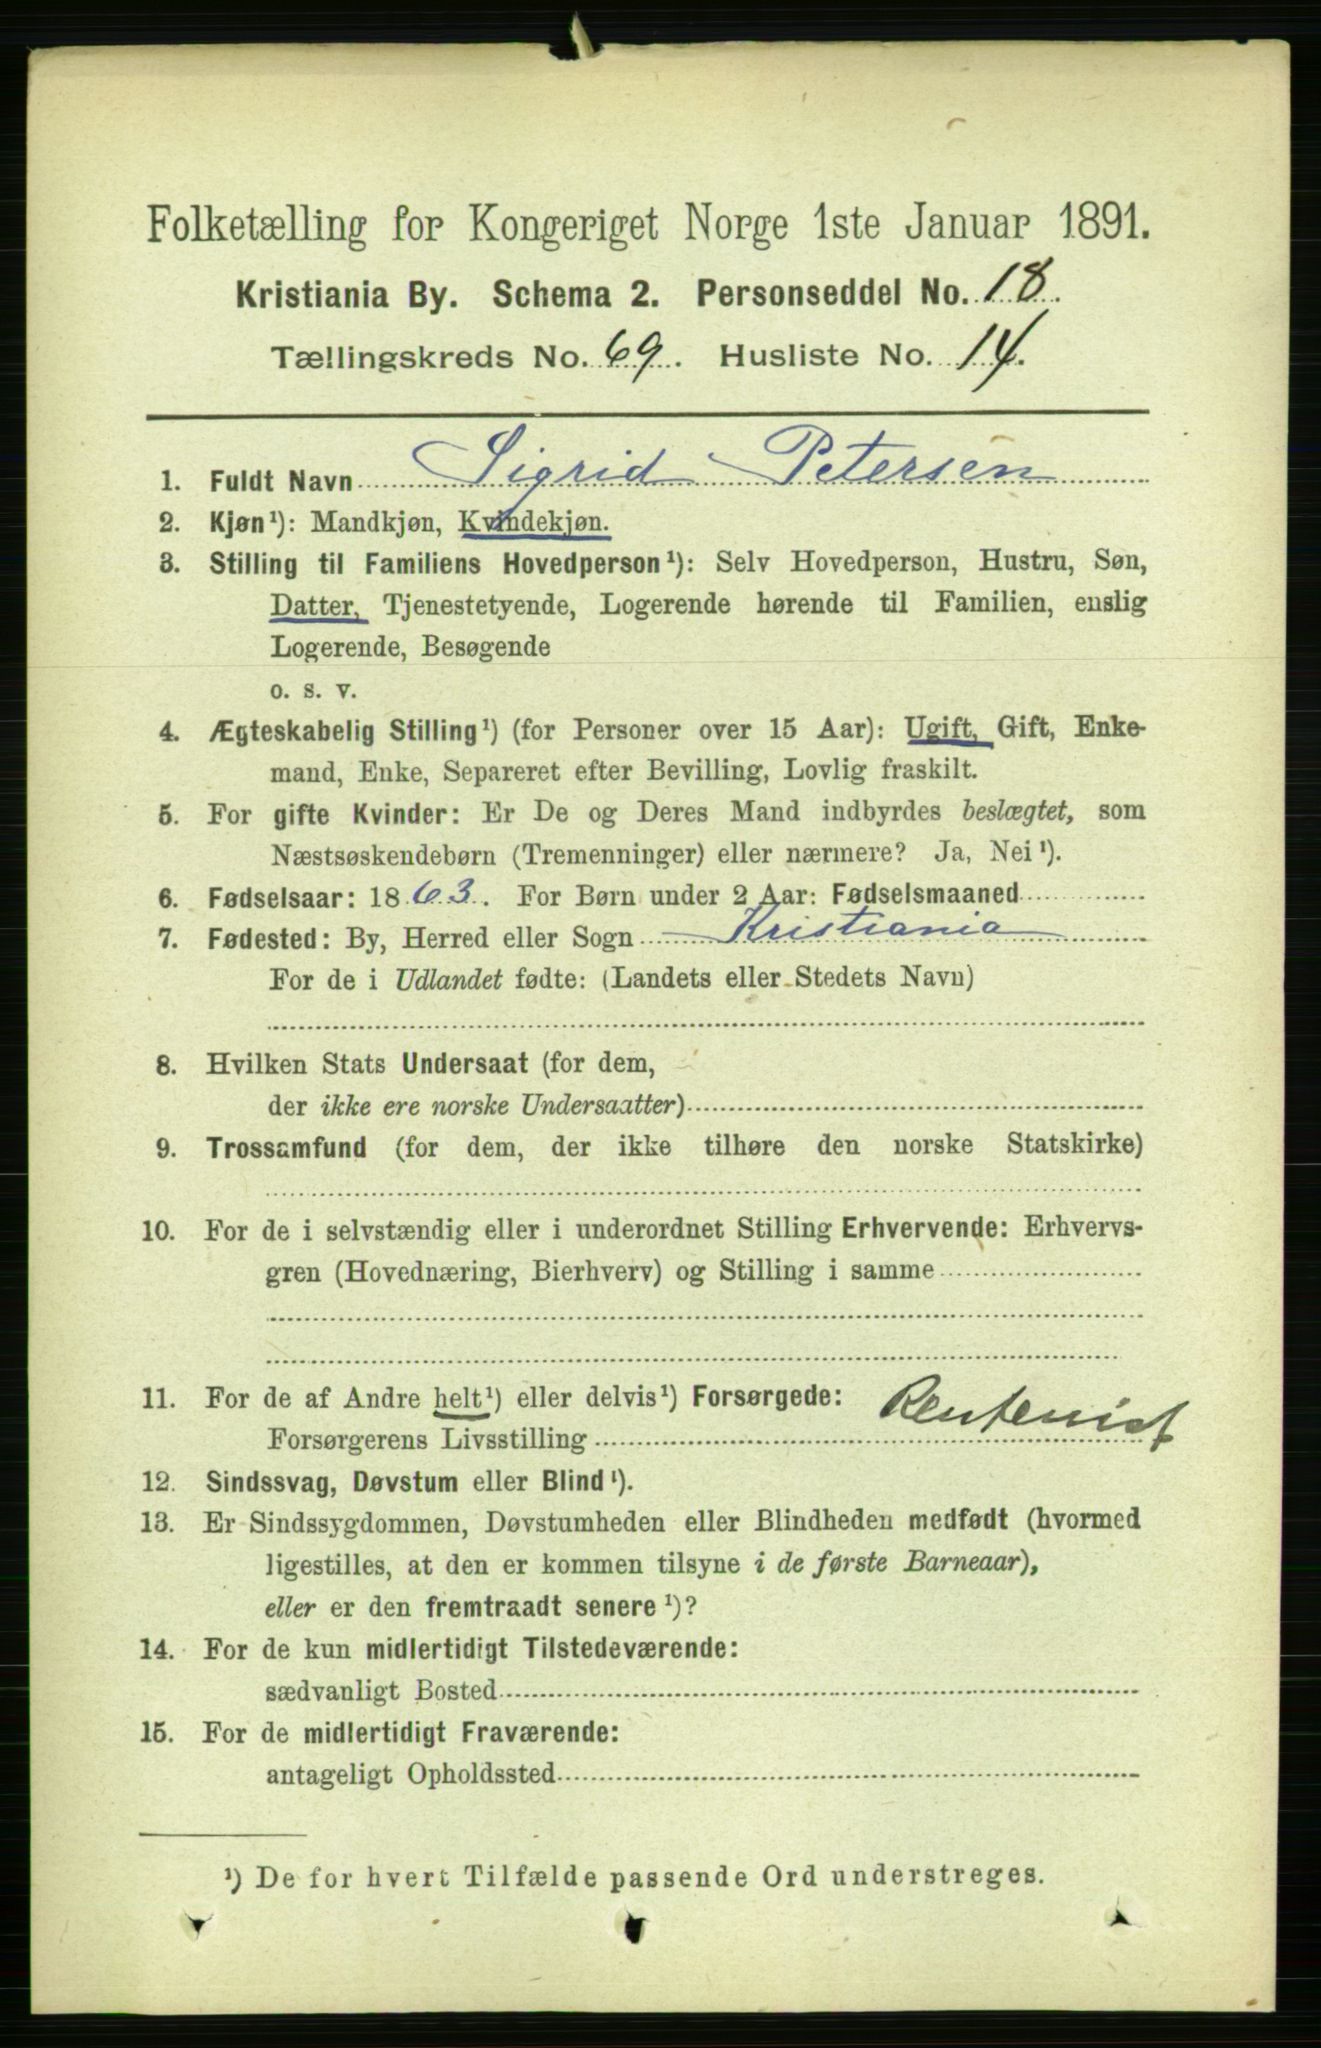 Folketælling for Kongeriget Norge 1ste Januar 1891.
Kristiania By. Schema 2. Personseddel No. 18.
Tællingskreds No. 69. Husliste No. 14.
1. Fuldt Navn Sigrid Petersen
2. Kjøn¹): Mandkjøn, Kvindekjøn.
3. Stilling til Familiens Hovedperson¹): Selv Hovedperson, Hustru, Søn,
Datter, Tjenestetyende, Logerende hørende til Familien, enslig
Logerende, Besøgende
o. s. v.
4. Ægteskabelig Stilling¹) (for Personer over 15 Aar): Ugift, Gift, Enke-
mand, Enke, Separeret efter Bevilling, Lovlig fraskilt.
5. For gifte Kvinder: Er De og Deres Mand indbyrdes beslægtet, som
Næstsøskendebørn (Tremenninger) eller nærmere? Ja, Nei¹).
6. Fødselsaar: 1863. For Børn under 2 Aar: Fødselsmaaned
7. Fødested: By, Herred eller Sogn Kristiania
For de i Udlandet fødte: (Landets eller Stedets Navn)
8. Hvilken Stats Undersaat (for dem,
der ikke ere norske Undersaatter)
9. Trossamfund (for dem, der ikke tilhøre den norske Statskirke)
10. For de i selvstændig eller i underordnet Stilling Erhvervende: Erhvervs-
gren (Hovednæring, Bierhverv) og Stilling i samme
11. For de af Andre helt¹) eller delvis¹) Forsørgede:
Forsørgerens Livsstilling Rentenist
12. Sindssvag, Døvstum eller Blind¹).
13. Er Sindssygdommen, Døvstumheden eller Blindheden medfødt (hvormed
ligestilles, at den er kommen tilsyne i de første Barneaar),
eller er den fremtraadt senere¹)?
14. For de kun midlertidigt Tilstedeværende:
sædvanligt Bosted
15. For de midlertidigt Fraværende:
antageligt Opholdssted
¹) De for hvert Tilfælde passende Ord understreges.